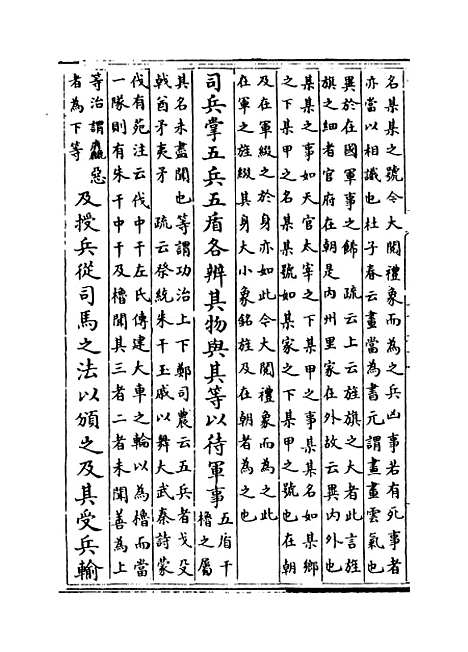 名某某之號令大閱禮象而為之兵凶事若有死事者
亦當以相識也杜子春云畫當為書元謂畫畫雲氣也
異於在國軍事之飾　疏云上云旌旗之大者此言旌
旗之細者官府在朝是内州里家在外故云異内外也
某某之事如天官太宰之下某甲之事某某名如某鄉
之下某甲之名某某號如某家之下某甲之號也在朝
及在軍綴之於身亦如此令大閱禮象而為之此
在軍之旌綴其身大小象銘旌及在朝者為之也
司兵掌五兵五盾各辨其物與其等以待軍事五盾干
櫓之屬
其名未盡聞也等謂功沽上下鄭司農云五兵者戈殳
戟酋矛夷矛　疏云祭統朱干玉戚以舞大武秦詩蒙
伐有苑注云伐中干左氏傳建大車之輪以為櫓而當
一隊則有朱干中干及櫓聞其三者二者未聞善為上
等沽謂麤惡
者為下等　及授兵從司馬之法以頒之及其受兵輸